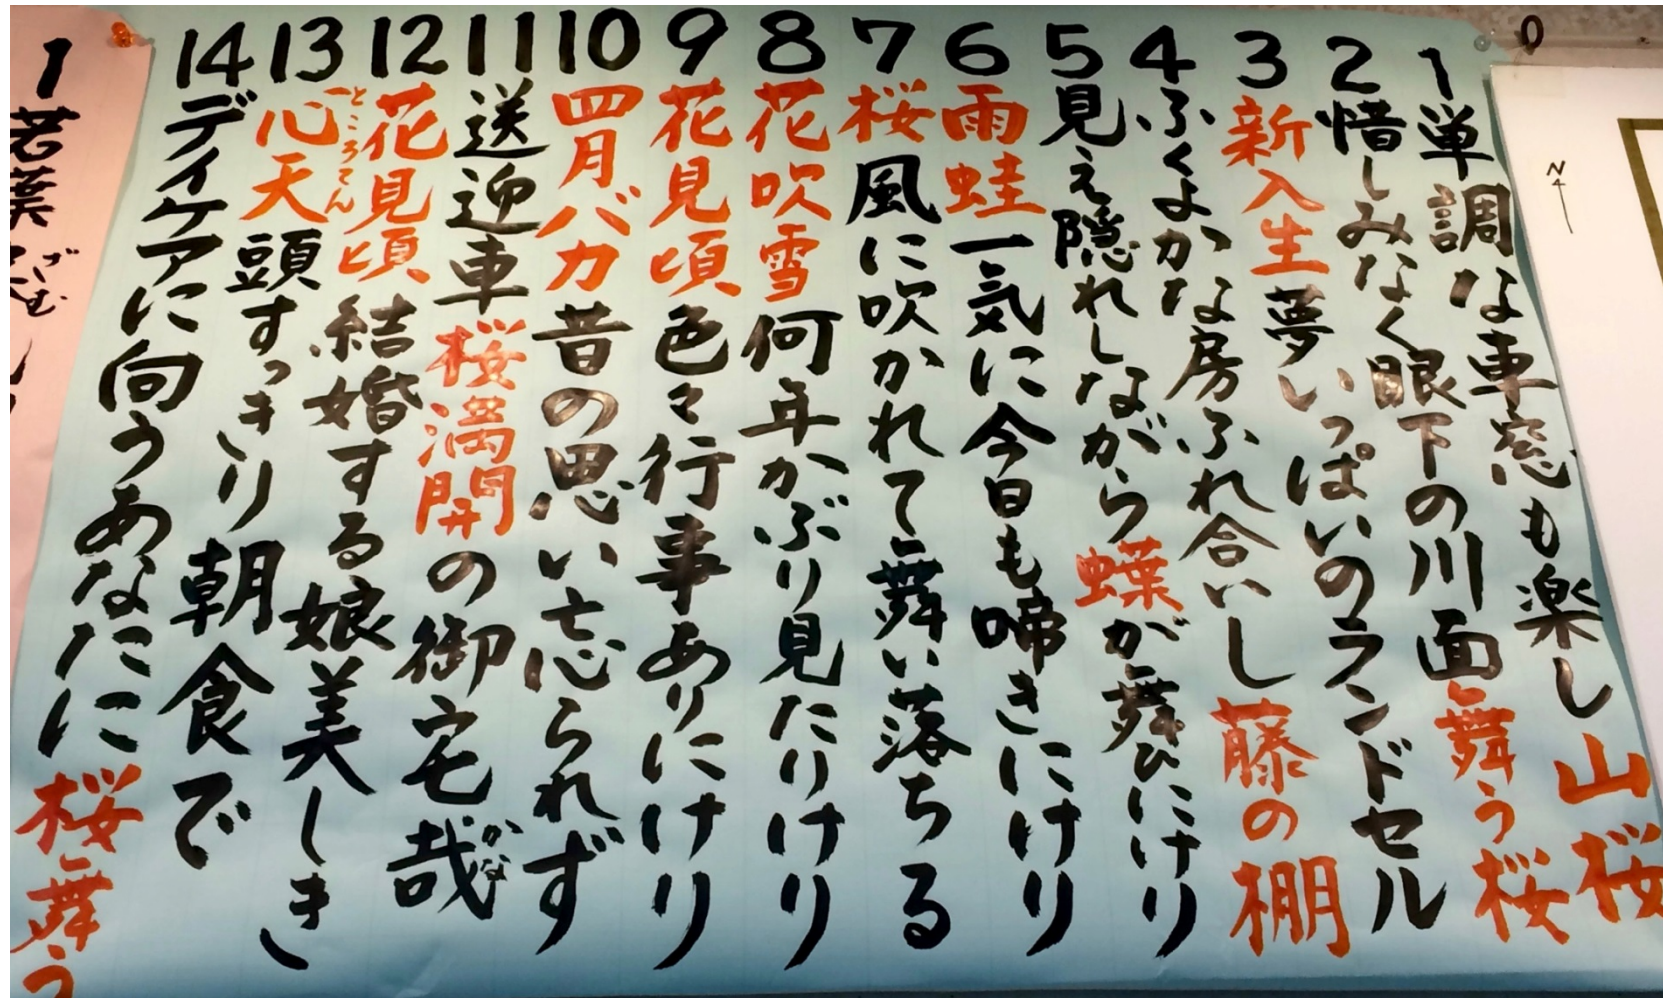 1 単調な車窓も楽し山桜
2 惜しみなく眼下の川面舞う桜
3 新入生夢いっぱいのランドセル
4 ふくよかな房ふれ合いし藤の棚
5 見え隠れしながら蝶が舞ひにけり
6 雨蛙一気に今日も啼きにけり
7 桜風に吹かれて舞い落ちる
8 花吹雪何年かぶり見たりけり
9 花見頃色々行事ありにけり
10 四月バカ昔の思い忘られず
11 送迎車桜満開の御宅哉
かな
12 花見頃結婚する娘美しき
13 心天頭すっきり朝食で
ところてん
14 デイケアに向うあなたに桜舞う
1 若葉